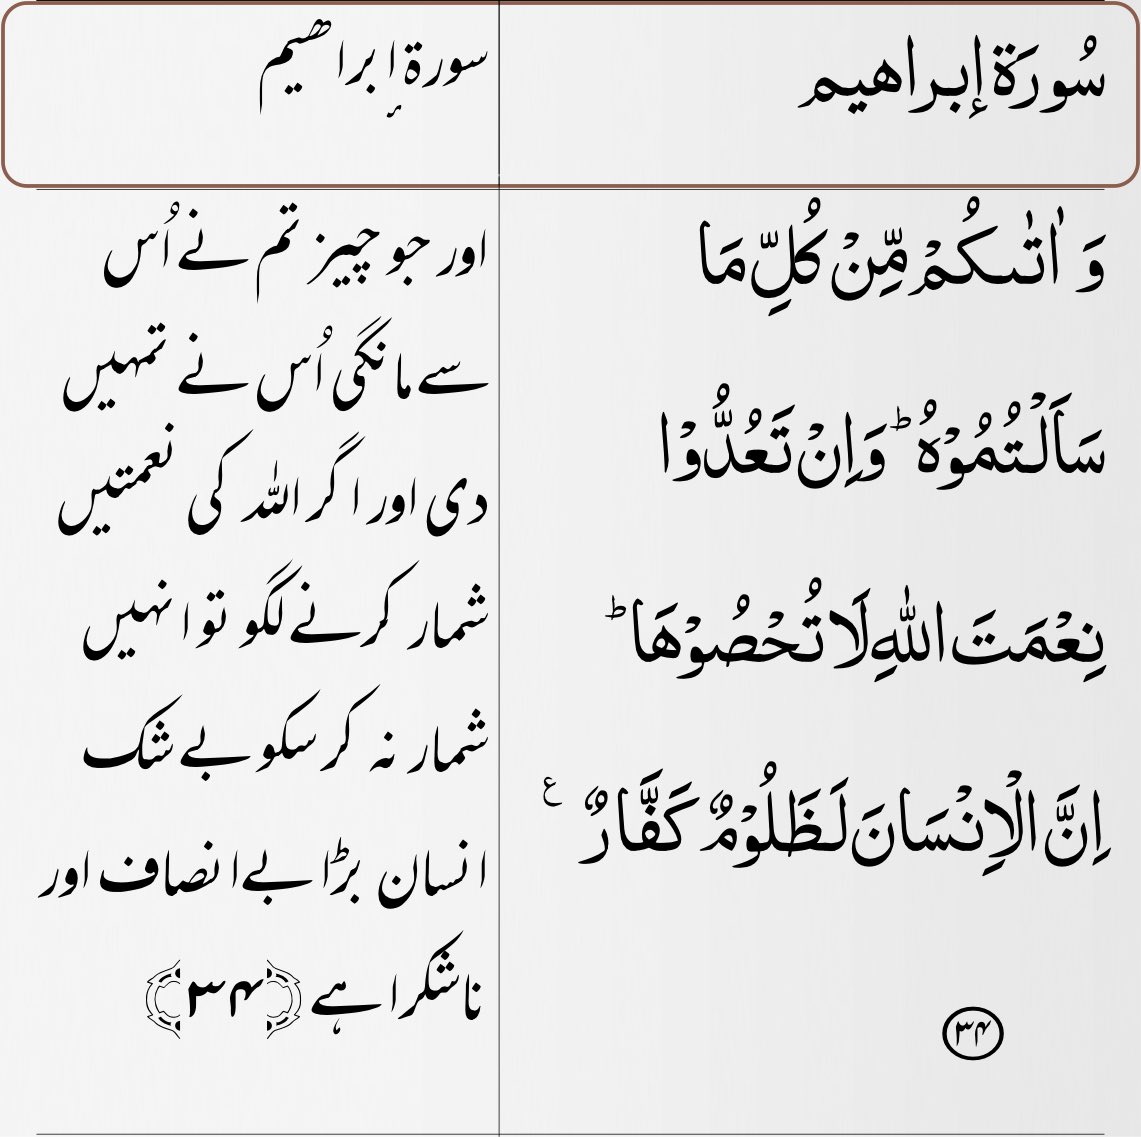 سُورَة إبراهيم
وَ اٰتٰٮكُمْ مِّنْ كُلِّ مَا
سَاَلْـتُمُوْهُ‌ ؕ وَاِنْ تَعُدُّوْا
نِعْمَتَ اللّٰهِ لَا تُحْصُوْهَا ؕ
اِنَّ الْاِنْسَانَ لَـظَلُوْمٌ كَفَّارٌ ع
۳۴
سورة إبراهيم
اور جو چیز تم نے اُس
سے مانگی اُس نے تمہیں
دی اور اگر الله کی نعمتیں
شمار کرنے لگو تو انہیں
شمار نہ کر سکو بے شک
انسان بڑا بےانصاف اور
ناشکرا ہے ﴿۳۴﴾